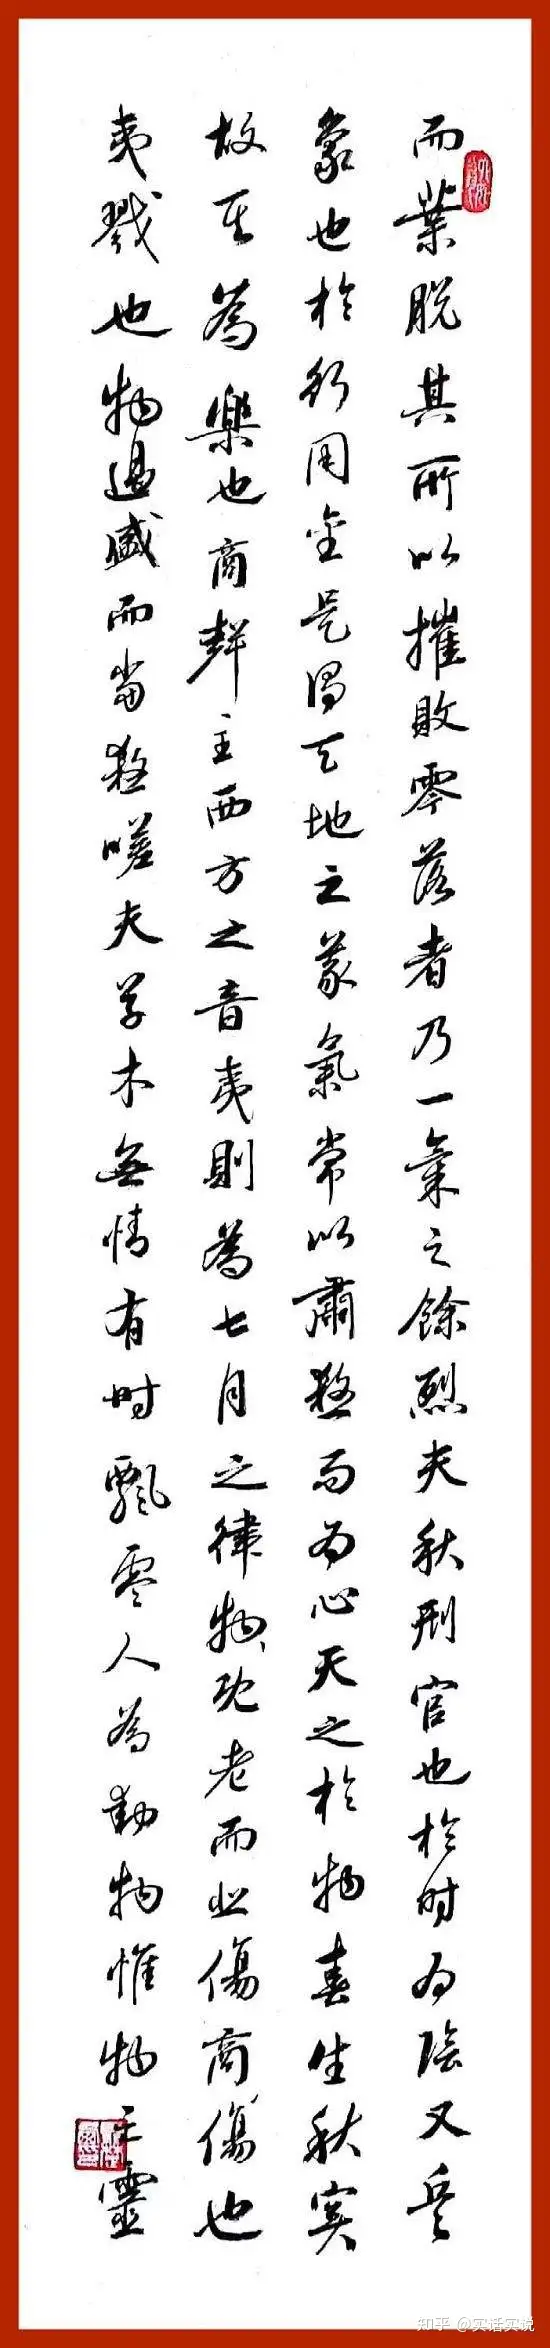 而葉脫其所以摧敗零落者乃一氣之餘烈夫秋刑官也於時為陰又兵
象也於行用金是謂天地之義氣常以肅殺而為心天之於物春生秋實
故其為樂也商聲主西方之音夷則為七月之律物既老而悲傷商傷也
夷戮也物過盛而當殺嗟夫草木無情有時飄零人為動物惟物之靈
知乎 @实话实说